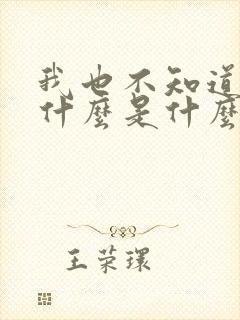 我也不知道
什麼是什麼
王荣環